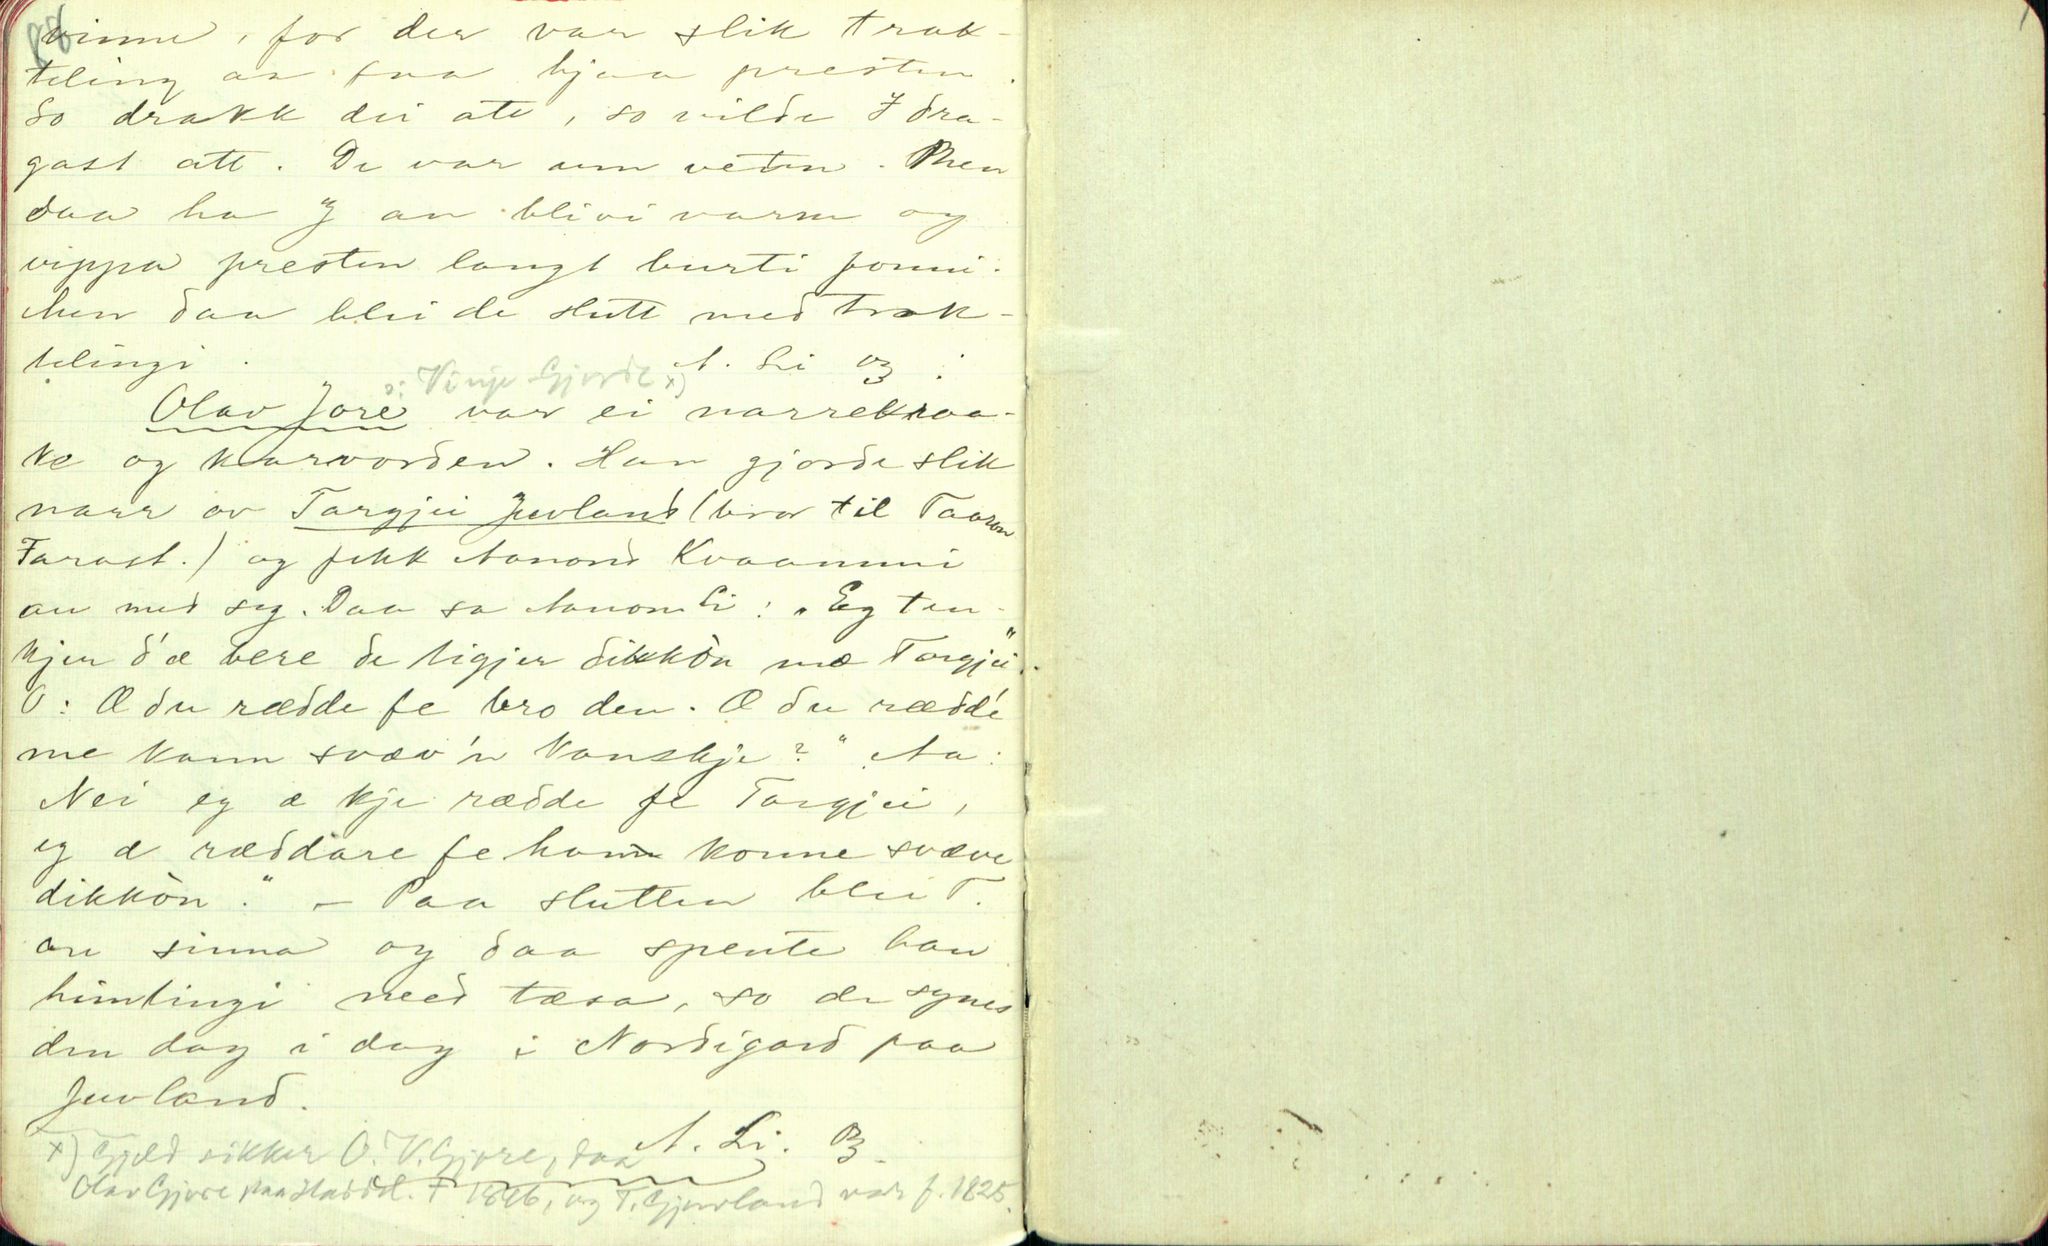 vinne, for der var slik trak-
teling aa faa hjaa presten.
So drakk dei ate, so vilde J dra-
gast att. De var um veten. Men
daa ha J an blivi varm og
vippa presten langt burti jonni.
Men daa blei de slutt med trak-
telingi. A. Li og B.
ɔ: Vinje Gjorde x)
Olav Jore var ei narrekraa-
ke og karvorden. Han gjorde slik
narr av Targjei Juvland (bror til Taaron
Tarast.) og fekk Aanond Kvaammi
an med seg. Daa sa Aanon Li: "Eg ten-
kjer d'æ vere de ligjer dikkòn mæ Targjei."
O: Æ du rædde fe bro den. Æ du rædd'e
me kann svæv'n kanskje?" Aa:
Nei eg æ kje rædde fe Targjei,
eg æ ræddare fe hann konne svæve
dikkòn." - Paa slutten blei T.
an sinna og daa spente han
himlingi med tæsa, so de synes
den dag i dag i Nordigard paa
Juvland.
A. Li. B.
x) Gjeld sikker O. V. Gjore, daa
Olav Gjore paa Haddl. † 1896, og T. Gjuvland var f. 1825.